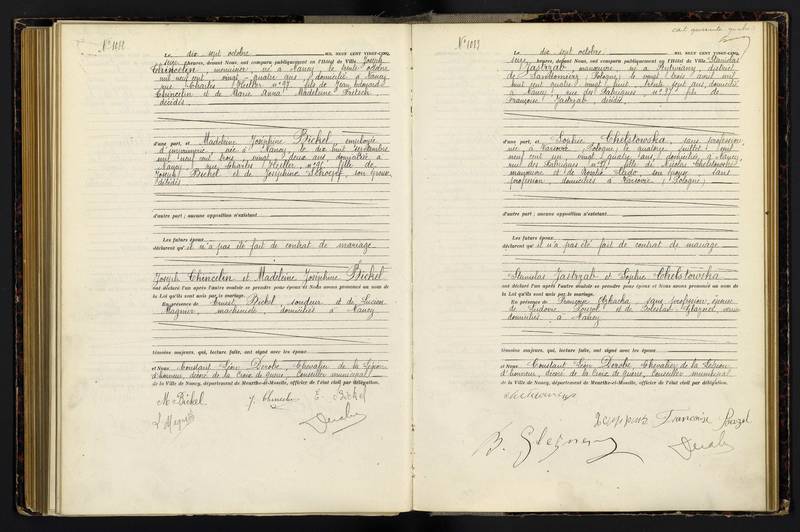 Le dix sept octobre MIL NEUF CENT VINGT-CINQ,
seize heures, devant Nous, ont comparu publiquement en l'Hôtel de Ville Joseph
Chincelin, menuisier, né à Nancy, le trente octobre
mil neuf cent, vingt-quatre ans, domicilié à Nancy
rue Charles Keller n° 97, fils de Jean
Chincelin et de Marie Anna Madeleine Fritsch
décédés
d'une part, et Madeleine Joséphine Bichel, employée
d'imprimerie, née à Nancy, le dix huit septembre
mil neuf cent trois, vingt deux ans, domiciliée à
Nancy, rue Charles Keller, n° 96, fille de
Joseph Bichel et de Joséphine son épouse,
décédés
d'autre part ; aucune opposition n'existant
Les futurs époux
déclarent qu'il n'a pas été fait de contrat de mariage
Joseph Chincelin et Madeleine Joséphine Bichel
ont déclaré l'un après l'autre vouloir se prendre pour époux et Nous avons prononcé au nom de
la Loi qu'ils sont unis par le mariage.
En présence de Ernest Bichel, soudeur et de Lucien
Magnier, machiniste, domiciliés à Nancy
témoins majeurs, qui, lecture faite, ont signé avec les époux
et Nous Constant Léon Derobe, Chevalier de la Légion
d'honneur, décoré de la Croix de guerre, Conseiller municipal
de la Ville de Nancy, département de Meurthe-et-Moselle, officier de l'état civil par délégation.
M. Bichel J. Chincelin E. Bichel
N° 1033
Le dix sept octobre MIL NEUF CENT VINGT-CINQ,
seize heures, devant Nous, ont comparu publiquement en l'Hôtel de Ville Stanislas
Jastrzab, manœuvre, né à district
de (Pologne) le vingt trois avril mil
huit cent quatre vingt huit, trente sept ans, domicilié
à Nancy, rue des Fabriques, n° 37, fils de
Françoise Jastrzab, décédée
d'une part, et Sophie Chelstowska, sans profession,
née à Varsovie (Pologne) le quatorze juillet mil
neuf cent un, vingt quatre ans, domiciliée à Nancy,
rue des Fabriques n° 37, fille de Nicolas Chelstowski
manœuvre et de Rosalie son épouse, sans
profession, domiciliés à Varsovie (Pologne)
d'autre part ; aucune opposition n'existant
Les futurs époux
déclarent qu'il n'a pas été fait de contrat de mariage
Stanislas Jastrzab et Sophie Chelstowska
ont déclaré l'un après l'autre vouloir se prendre pour époux et Nous avons prononcé au nom de
la Loi qu'ils sont unis par le mariage.
En présence de Françoise sans profession, épouse
de Ludovic et de Boleslas
domiciliés à Nancy
témoins majeurs, qui, lecture faite, ont signé avec les époux
et Nous Constant Léon Derobe, Chevalier de la Légion
d'honneur, décoré de la Croix de guerre, Conseiller municipal
de la Ville de Nancy, département de Meurthe-et-Moselle, officier de l'état civil par délégation.
Françoise